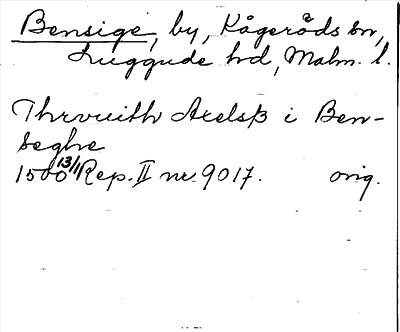 Bensige, by, Kågeröds sn,
Luggude hd, Malm. l.
Thrvuith Axelsß i Ben-
seghe
1500 13/1 Rep. II nr. 9017. orig.